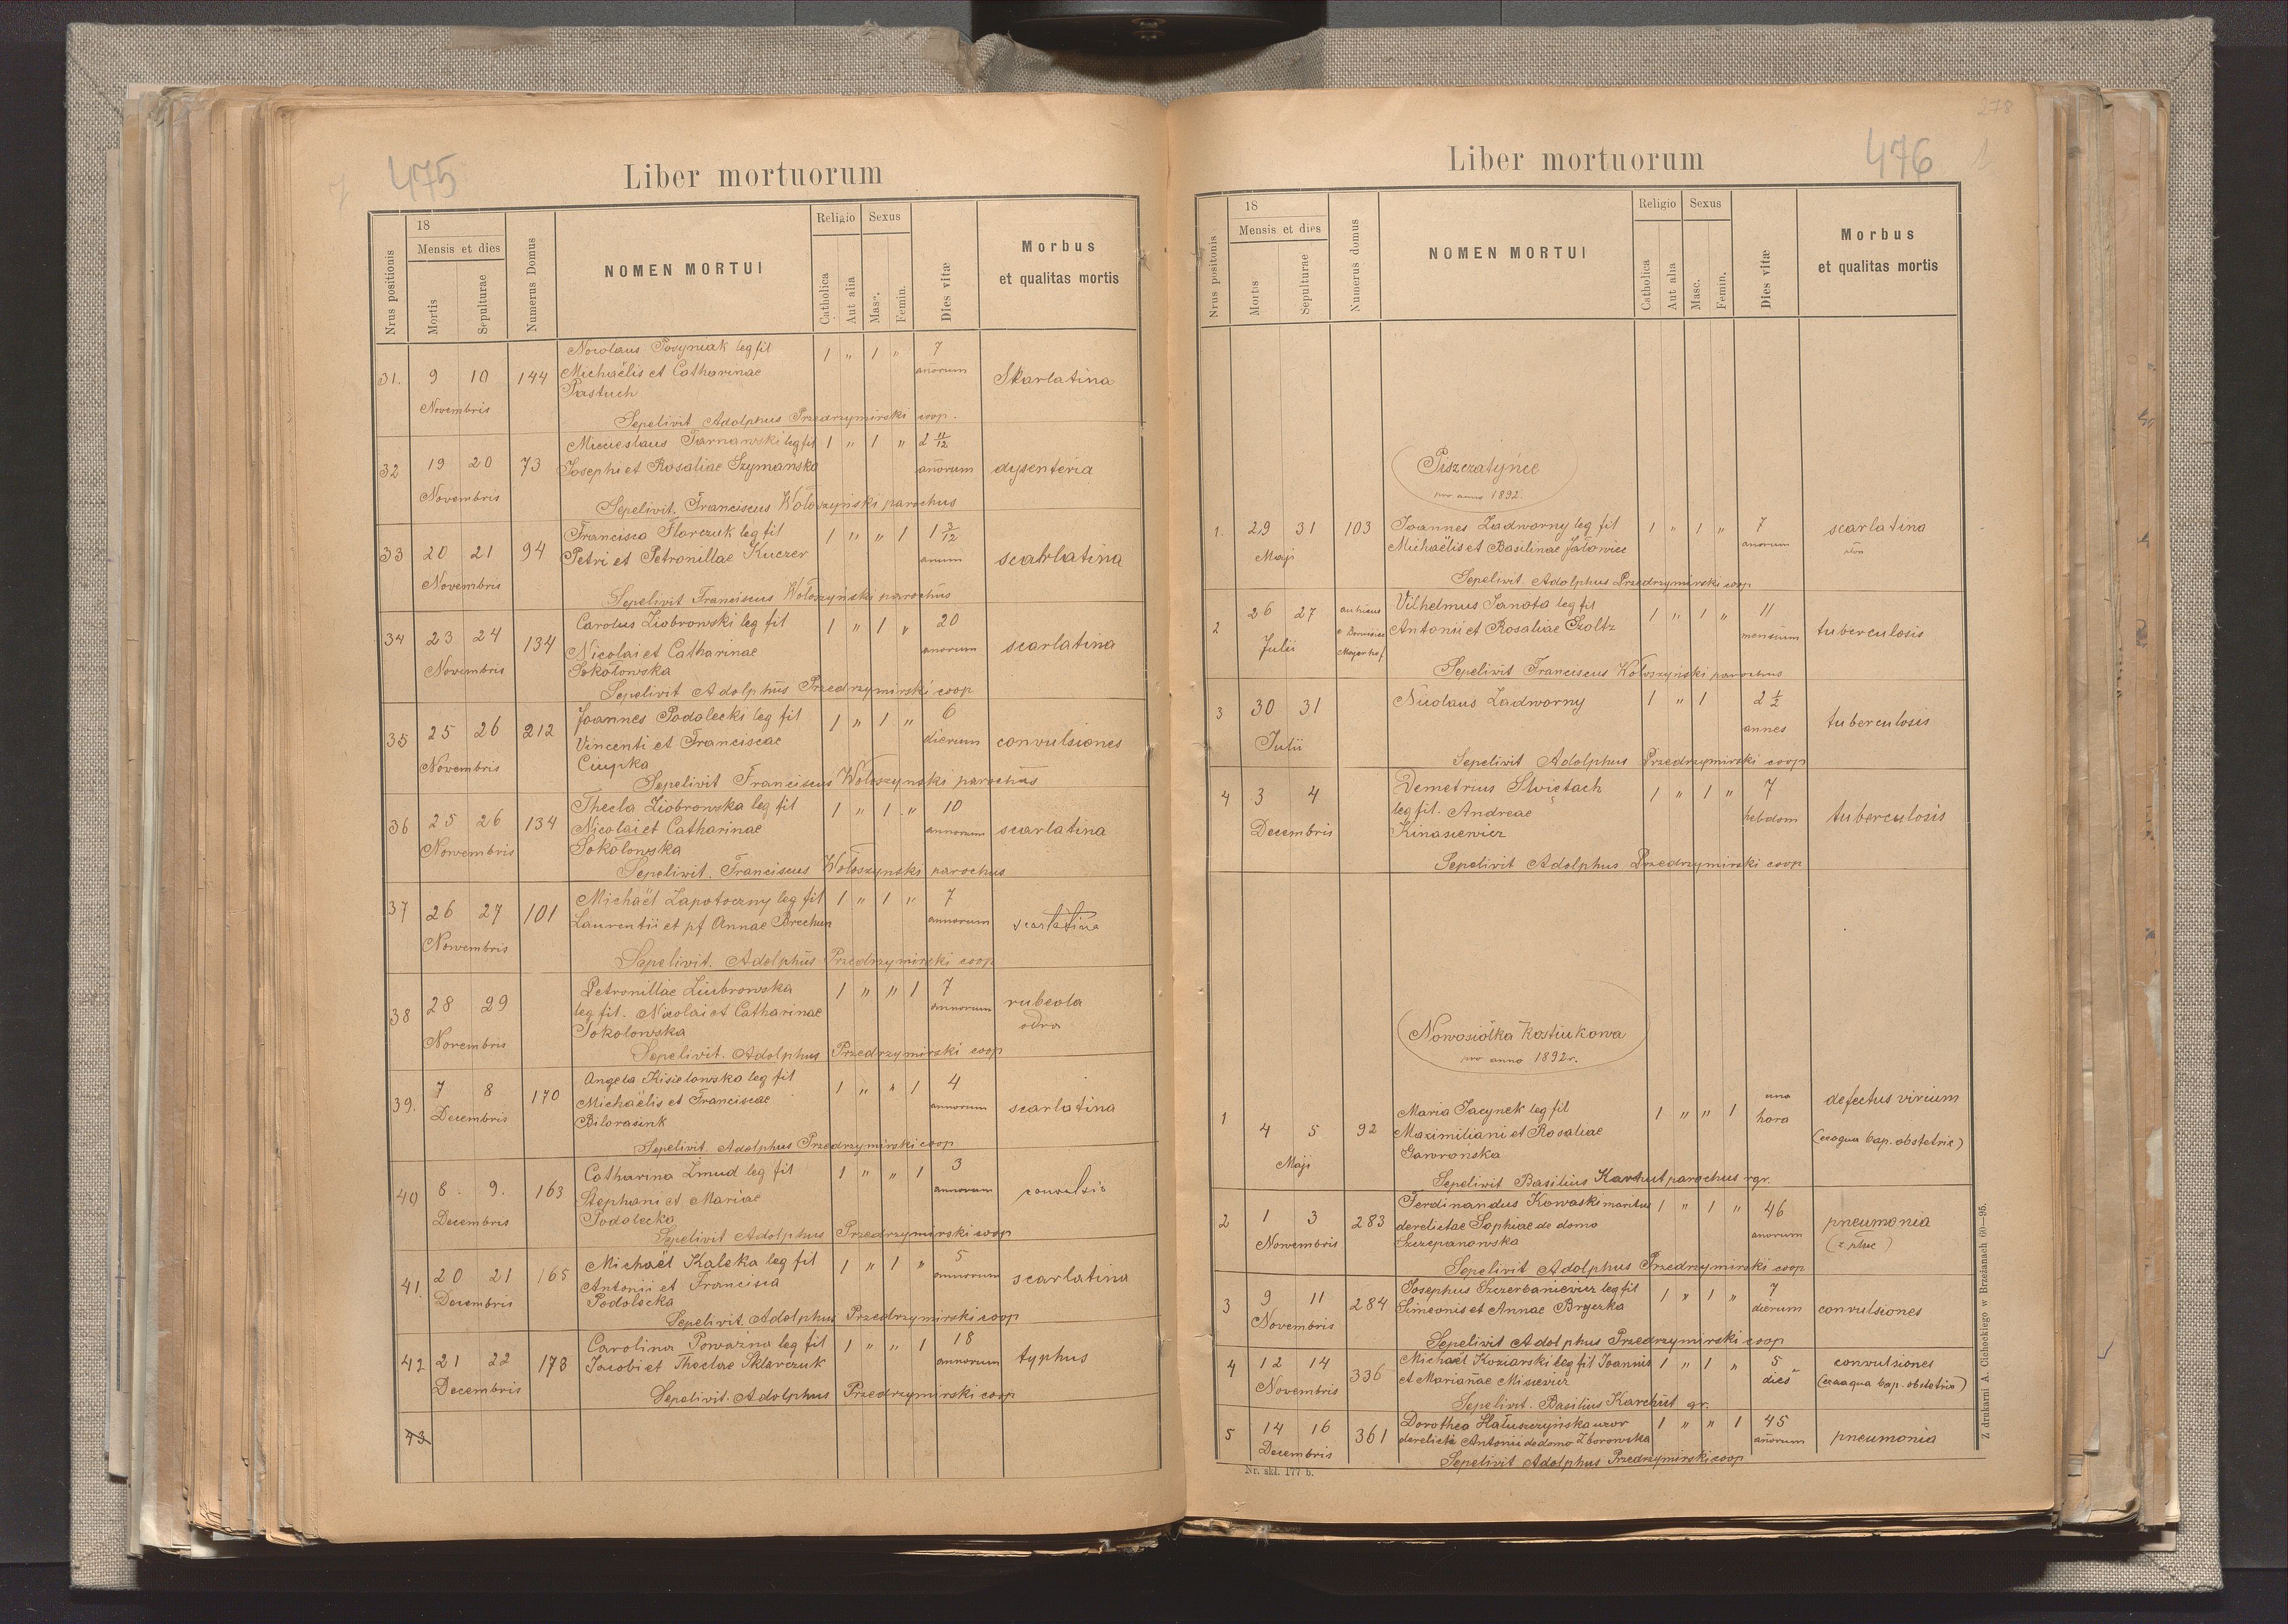 475
Liber mortuorum
Nrus positionis
18
Mensis et dies
Mortis
Sepulturae
Numerus Domus
NOMEN MORTUI
Religio
Catholica
Aut alia
Sexus
Masc.
Femin.
Dies vitæ
Morbus
et qualitas mortis
31. 9 10 144 leg fil 1 " 1 " 7
Michaëlis et Catharinae anorum Skarlatina
Pastuch
Novembris
Sepelivit Adolphus Przedrzymirski coop.
Mieceslaus Tarnawski leg fil 1 " 1 " 2 11/12
32 19 20 73 Josephi et Rosaliae Szymanska anorum dysenteria
Novembris
Sepelivit. Franciscus Wołoszyński parochus
Francisca Florczuk leg fil 1 " " 1 1 3/12
33 20 21 94 Petri et Petronillae Kuczer anum scarlatina
Novembris
Sepelivit Franciscus Wołoszyński parochus
Carolus Ziobrowski leg fil 1 " 1 " 20
34 23 24 134 Nicolai et Catharinae anorum scarlatina
Novembris Sokołowska
Sepelivit Adolphus Przedrzymirski coop
Joannes Podolecki leg fil 1 " 1 " 6
35 25 26 212 Vincenti et Franciscae dierum convulsiones
Novembris Ciupka
Sepelivit Franciscus Wołoszynski parochus
Thecla Ziobrowska leg fil 1 " 1 " 10
36 25 26 134 Nicolai et Catharinae annorum scarlatina
Novembris Sokołowska
Sepelivit. Franciscus Wołoszynski parochus
Michaël Zapotoczny leg fil 1 " 1 " 7
37 26 27 101 Laurentii et pf Annae Brechun annorum scarlatina
Novembris
Sepelivit. Adolphus Przedrzymirski coop
Petronillae Ziubrowska 1 " " 1 7
38 28 29 leg fil. Nicolai et Catharinae annorum rubeola
Novembris Sokolowska odra
Sepelivit. Adolphus Przedrzymirski coop
Angela Kisielowska leg fil 1 " " 1 4
39. 7 8 170 Michaëlis et Franciscae annorum scarlatina
Decembris
Sepelivit. Adolphus Przedrzymirski coop
Catharina Żmud leg fil 1 " " 1 3
40 8 9. 163 Stephani et Mariae annorum convulsio
Decembris Podolecka
Sepelivit Adolphus Przedrzymirski coop
Michaël Kaleka leg fil 1 " 1 " 5
41. 20 21 165 Antonii et Francisca annorum scarlatina
Decembris Podolecka
Sepelivit. Adolphus Przedrzymirski coop
Carolina Poważna leg fil 1 " " 1 18
42 21 22 178 Jacobi et Theclae Sklarczuk annorum typhus
Decembris
Sepelivit. Adolphus Przedrzymirski coop
43
278
476 1
Liber mortuorum
Nrus positonis
18
Mensis et dies
Mortis
Sepulturae
Numerus domus
NOMEN MORTUI
Religio
Catholica
Aut alia
Sexus
Masc.
Femin.
Dies vitæ
Morbus
et qualitas mortis
Piszczatyńce
pro anno 1892.
1. 29 31 103 Joannes Zadworny leg fil 1 " 1 " 7 scarlatina
Maji Michaëlis et Basilinae Jałowiec anorum
Sepelivit Adolphus Przedrzymirski coop
2 26 27 Vilhelmus Sanota leg fil 1 " 1 " 11
Julii Antonii et Rosaliae Szoltz mensium tuberculosis
Sepelivit Franciscus Wołoszyński parochus
3 30 31 Nicolaus Zadworny 1 " 1 2 1/2
Julii annes tuberculosis
Sepelivit Adolphus Przedrzymirski coop
4 3 4 Demetrius 1 " 1 " 7
leg fil. Andreae hebdom tuberculosis
Decembris Kinasiewicz
Sepelivit Adolphus Przedrzymirski coop
Nowosiółka Kostiukowa
pro anno 1892r.
1 4 5 92 Maria Jacynek leg fil 1 " " 1 una hora defectus virium
Maximiliani et Rosaliae (exaqua bap. obstetrix)
Maji Gawronska
Sepelivit Basilius Karchut parochus rgr.
2 1 3 283 Ferdinandus Kowaski maritus 1 " 1 " 46
derelictae Sophiae de domo anorum pneumonia
Novembris Szczepanowska
Sepelivit Adolphus Przedrzymirski coop
3 9 11 284 Josephus Szczerbaniewicz leg fil 1 " 1 " 7
Novembris Simeonis et Annae Bryczka dierum convulsiones
Sepelivit Adolphus Przedrzymirski coop
4 12 14 336 Michaël Koziarski leg fil Joannis 1 " 1 " 5 convulsiones
Novembris et Marianae Misiewicz dies (exaqua bap. obstetrix)
Sepelivit. Basilius Karchut gr.
5 14 16 361 Dorothea Hałuszczyńska uxor 1 " " 1 45
Decembris derelicta Antonii de domo Zborowska anorum pneumonia
Sepelivit Adolphus Przedrzymirski coop
Nr. skł. 177 b.
Z drukarni A. Cichockiego w Brzeżanach 60—95.